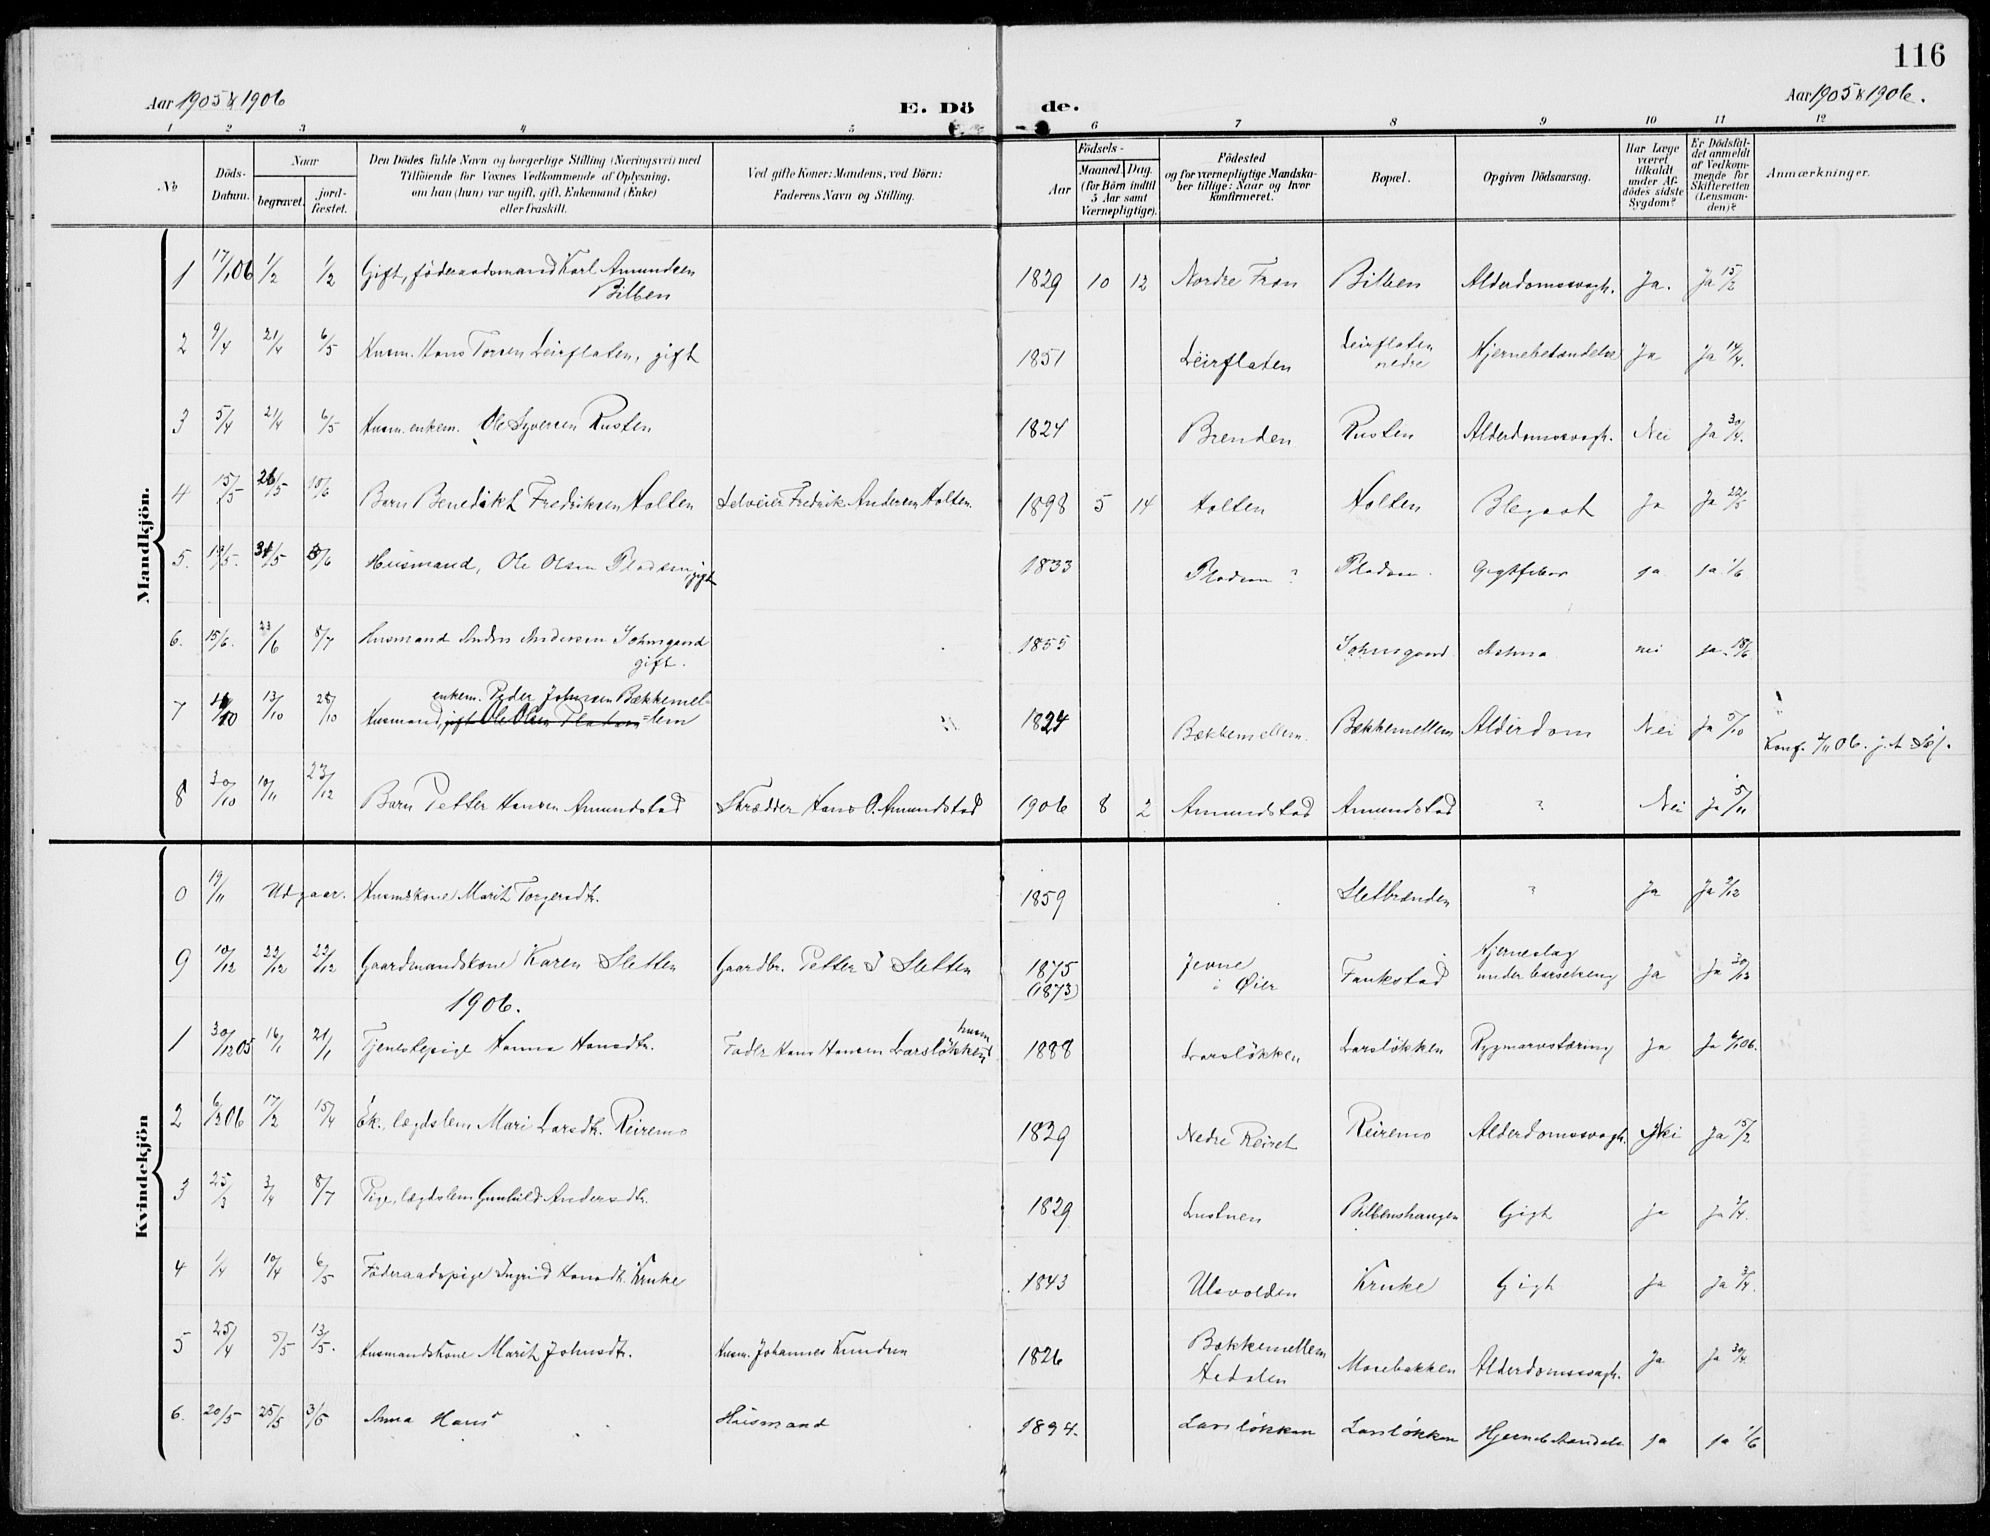 116
Aar 1905 & 1906
E. Dö de.
Aar 1905 & 1906.
1 2 3 4 5 6 7 8 9 10 11 12
No
Döds-Datum.
Naar
begravet.
jord-fæstet.
Den Dödes fulde Navn og borgerlige Stilling (Næringsvei) med
Tilföiende for Voxnes Vedkommende af Oplysning,
om han (hun) var ugift, gift, Enkemand (Enke)
eller fraskilt.
Ved gifte Koner: Mandens, ved Börn:
Faderens Navn og Stilling.
Födsels-
Aar
Maaned. Dag.
(for Börn indtil
5 Aar samt
Værnepligtige).
Födested
og for værnepligtige Mandska-
ber tillige: Naar og hvor
konfirmeret.
Bopæl.
Opgiven Dödsaarsag.
Har Læge
været
tilkaldt
under Af-
dödes sidste
Sygdom?
Er Dödsfal-
det anmeldt
af Vedkom-
mende for
Skifteretten
(Lensman-
den)?
Anmærkninger.
Mandkjön.
1 17/1 06 1/2 1/2 Gift, föderaadsmand Karl Amundsen Bilben 1829 10 12 Nordre Fron Bilben Alderdomssvagh. Ja. Ja 15/2
2 9/4 21/4 6/5 Husm. Hans Torsen Leirflaten, gift 1851 Leirflaten Leirflaten nedre Hjernebetændelse Ja Ja 14/4.
3 5/4 21/4 6/5 Husm. enkem. Ole Syversen Rusten 1824 Brenden Rusten Alderdomssvagh. Nei Ja 30/4.
4 15/5 26/5 10/6 Barn Benedikt Fredriksen Holten Selveier Fredrik Andersen Holten 1898 5 14 Holten Holten Blegsot Ja Ja 22/5
5. 19/5. 31/5 /6 Husmand, Ole Olsen Pladsen gift 1833 Pladsen ? Pladsen. Gigtfeber ja ja 1/6
6. 15/6. 23/6 8/7 Husmand Anders Andersen gift. 1855 Astma nei ja 18/6
7 /10 13/10 28/10 Husmand, enkem. Peder Johnsen Bækkemellem gift Ole Olsen Pladsen 1824 Bækkemellem. Bækkemellem Alderdom Nei Ja 5/10
8 30/10 10/11 23/12 Barn Petter Hansen Amundstad Skrædder Hans O. Amundstad 1906 8 2 Amundstad Amundstad ? Nei Ja 5/11
Kvindekjön
0 19/11 Udgaar. Husmskone Marit Torgersdtr. 1859 Sletbrænden ? Ja Ja 2/12
9 10/12 22/12 22/12 Gaardmandskone Karen Sletten Gaardbr. Petter J Sletten 1875 (1873) Jevne i Öier Fankstad Hjerneslag under barselseng Ja Ja 30/12
1906.
1 30/12 05 16/1 21/1 Tjenestepige Hanna Hansdtr. Fader husm Hans Hansen Larslökken 1888 Larslökken Larslökken Rygmarvstæring Ja Ja 6/1 06.
2 6/2 06 17/2 15/4 Ek., lægdslem Mari Larsdtr. Reiremo 1829 Nedre Reiret Reiremo Alderdomssvagh. Nei Ja 15/2
3 25/3 3/4 8/7 Pige, lægdslem Gunhild Andersdtr. 1829 Lustuen Bilbenshaugen Gigt ja ja /4.
4 1/4 10/4 6/5 Föderaadspige Ingrid Hansdtr. Kruke 1843 Ulsvolden Kruke Gigt Ja Ja 3/4.
5 25/4 5/5 13/5. Husmandskone Marit Johnsdtr. Husm. Johannes Knudsen 1826 Bækkemellem Hedalen Morebakken Alderdomssvagh. Ja Ja 30/4.
6. 20/5 25/5 3/6 Anna Hans Husmand 1894. Larslökken Larslökken ja ja 1/6